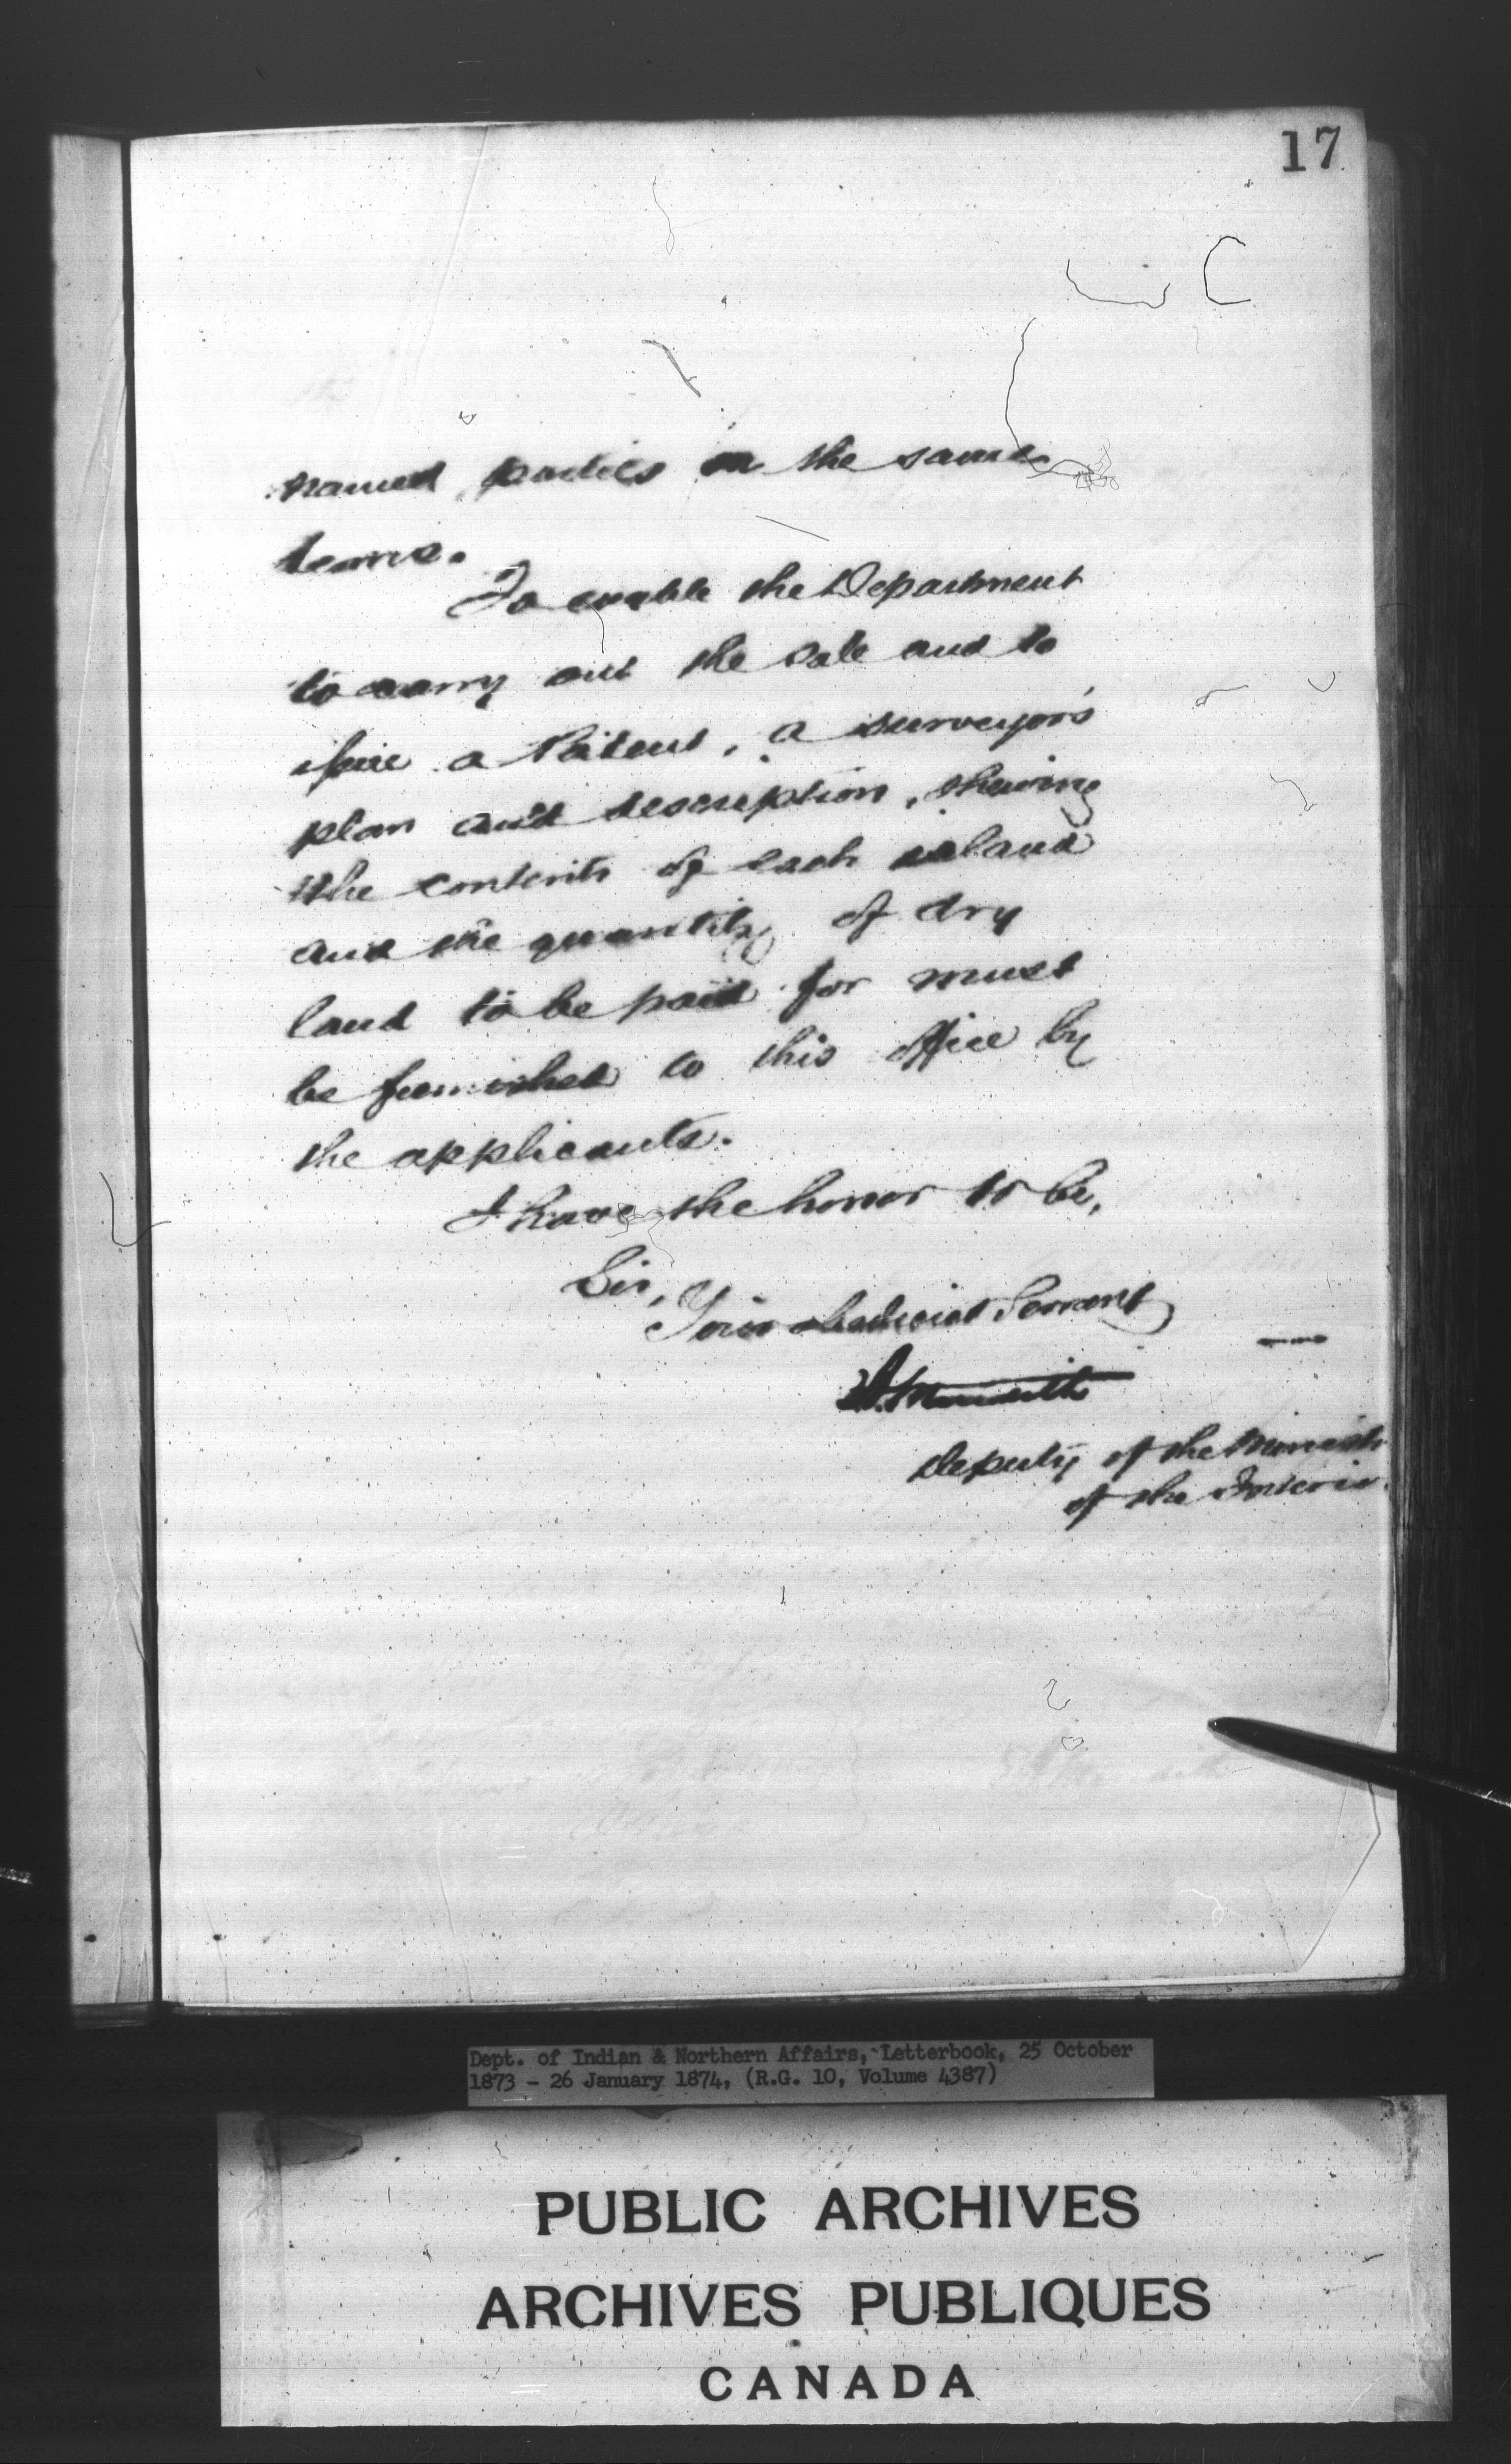 17
named parties on the same
terms.
To enable the Department
to carry out the sale and to
issue a Patent, a surveyor's
plan and description, shewing
the contents of each island
and the quantity of dry
land to be paid for must
be furnished to this office by
the applicants.
I have the honor to be,
Sir,
Your obedient Servant
Meredith
Deputy of the Minister
of the Interior
Dept. of Indian & Northern Affairs, Letterbook, 25 October
1873 - 26 January 1874, (R.G. 10, Volume 4387)
PUBLIC ARCHIVES
ARCHIVES PUBLIQUES
CANADA